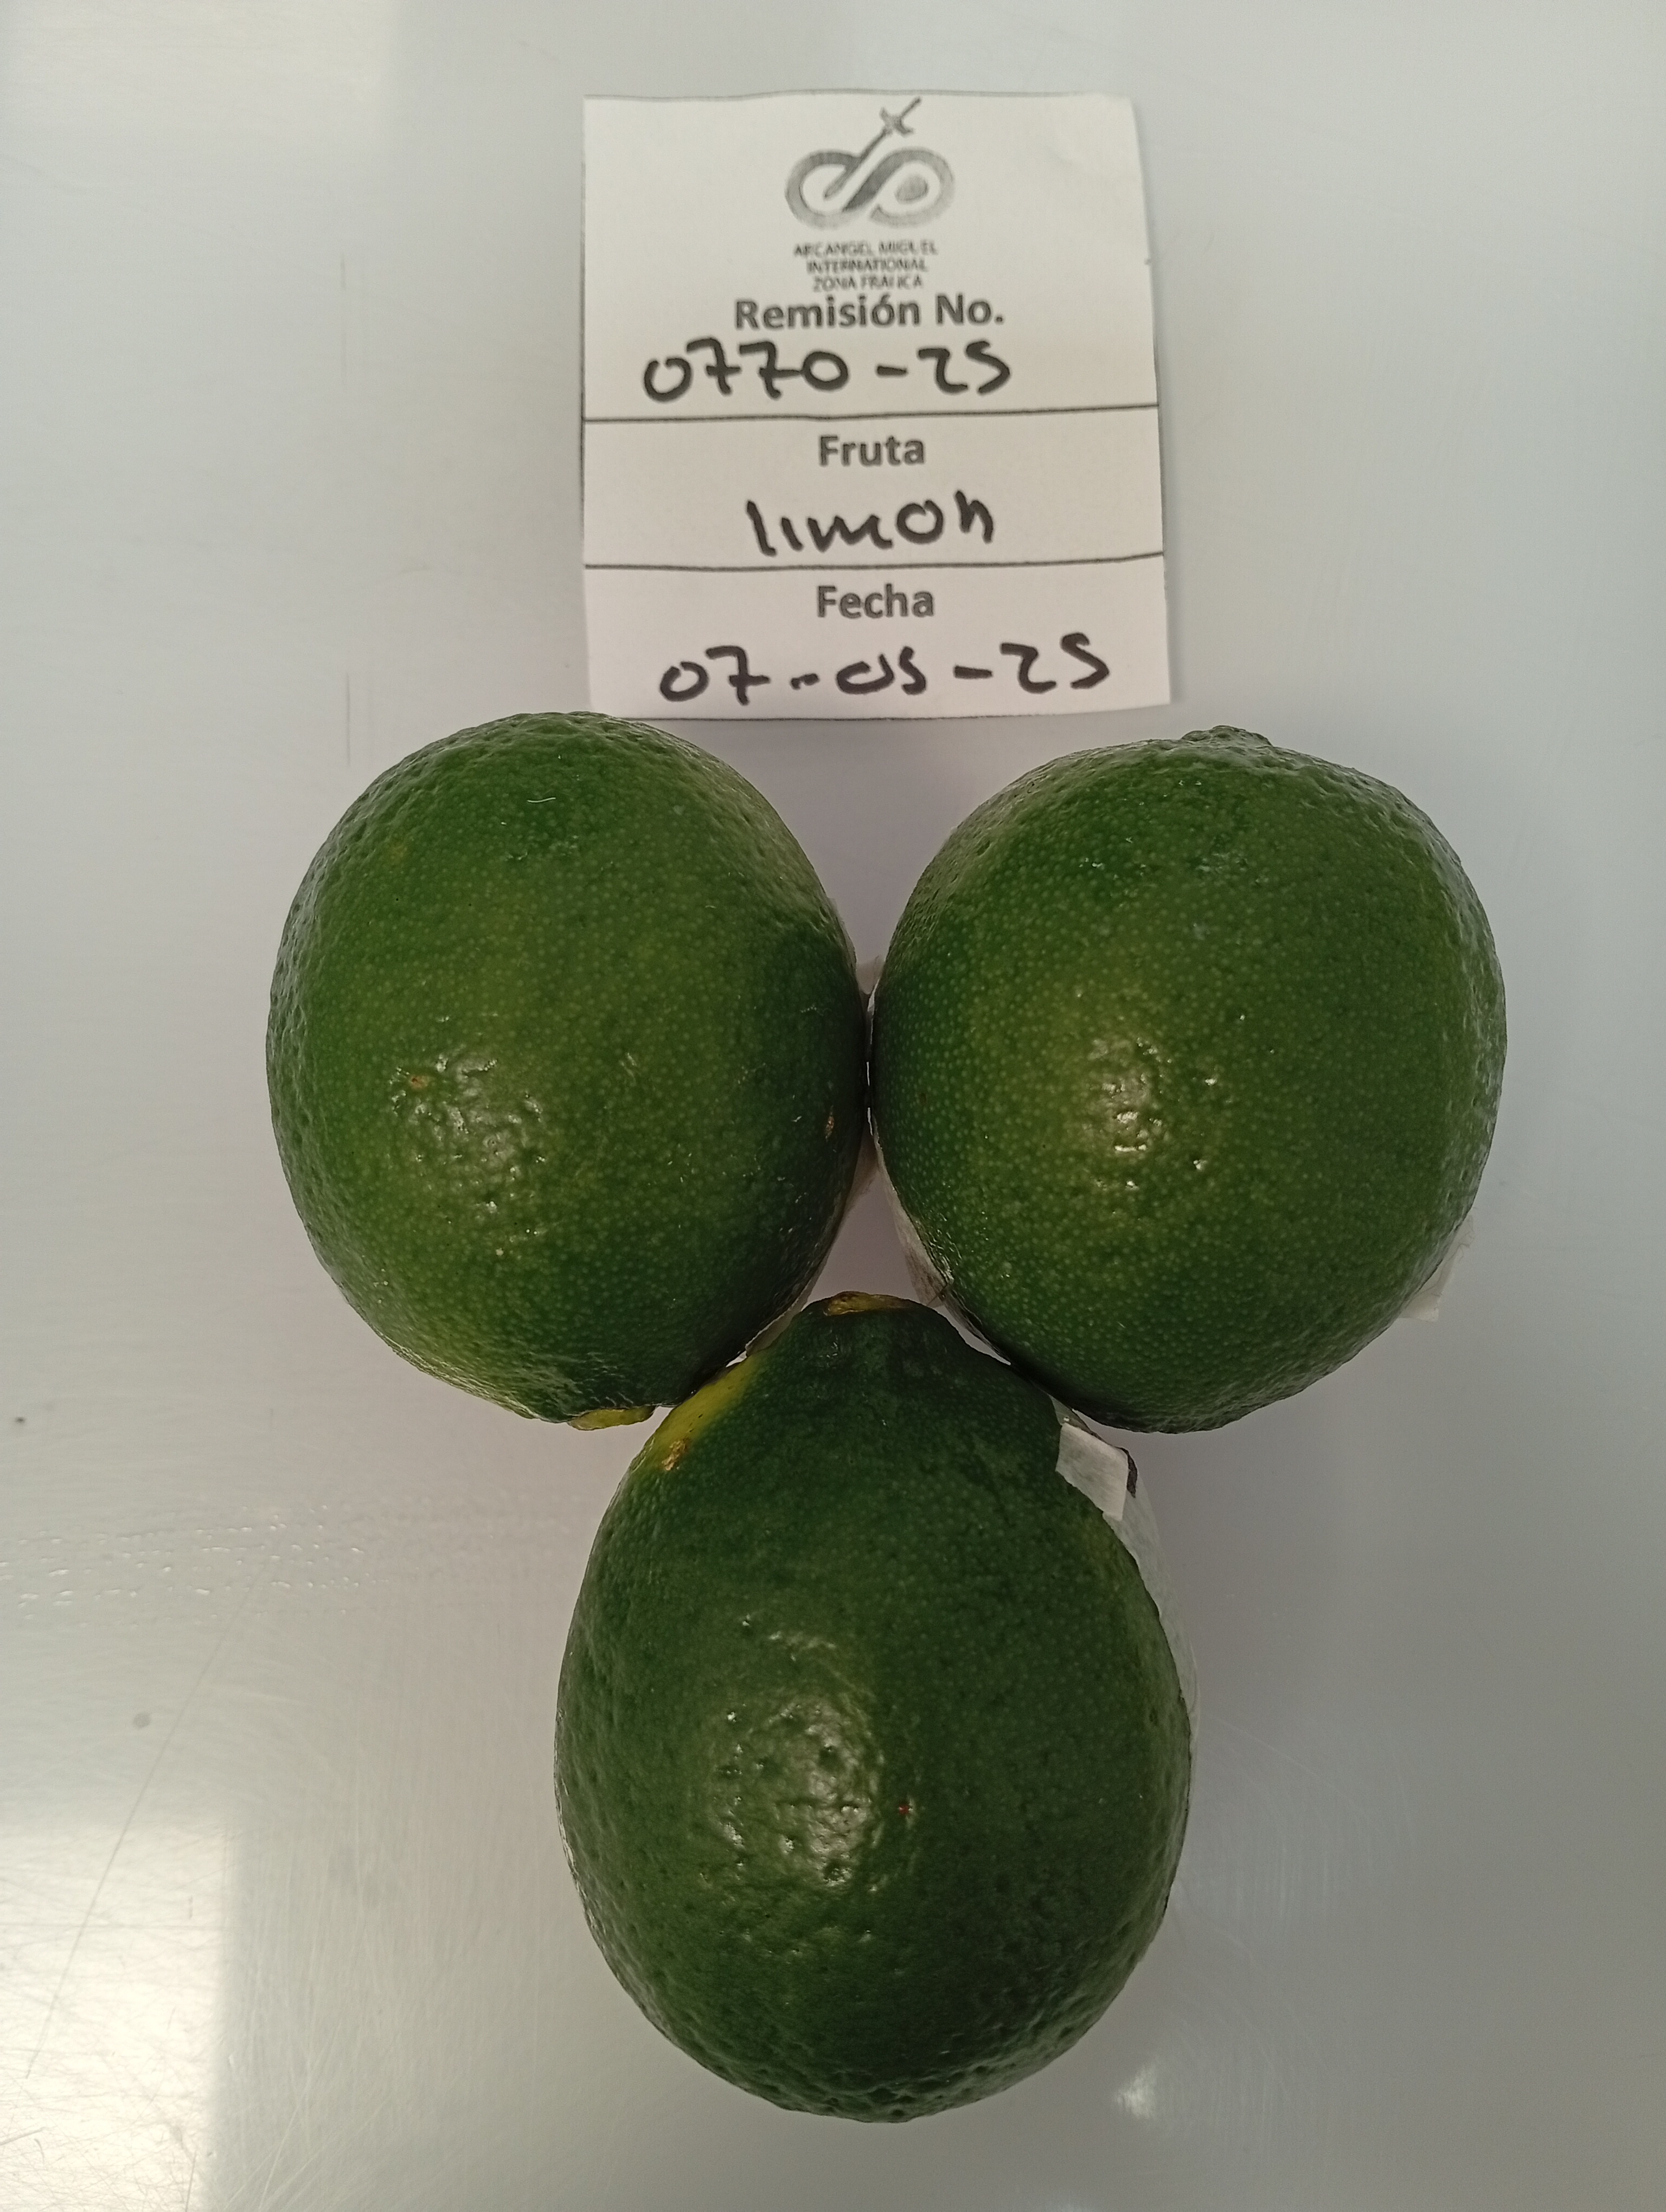 ARCANGEL MIGUEL
INTERNATIONAL
ZONA FRANCA
Remisión No.
0770-25
Fruta
limon
Fecha
07-05-25